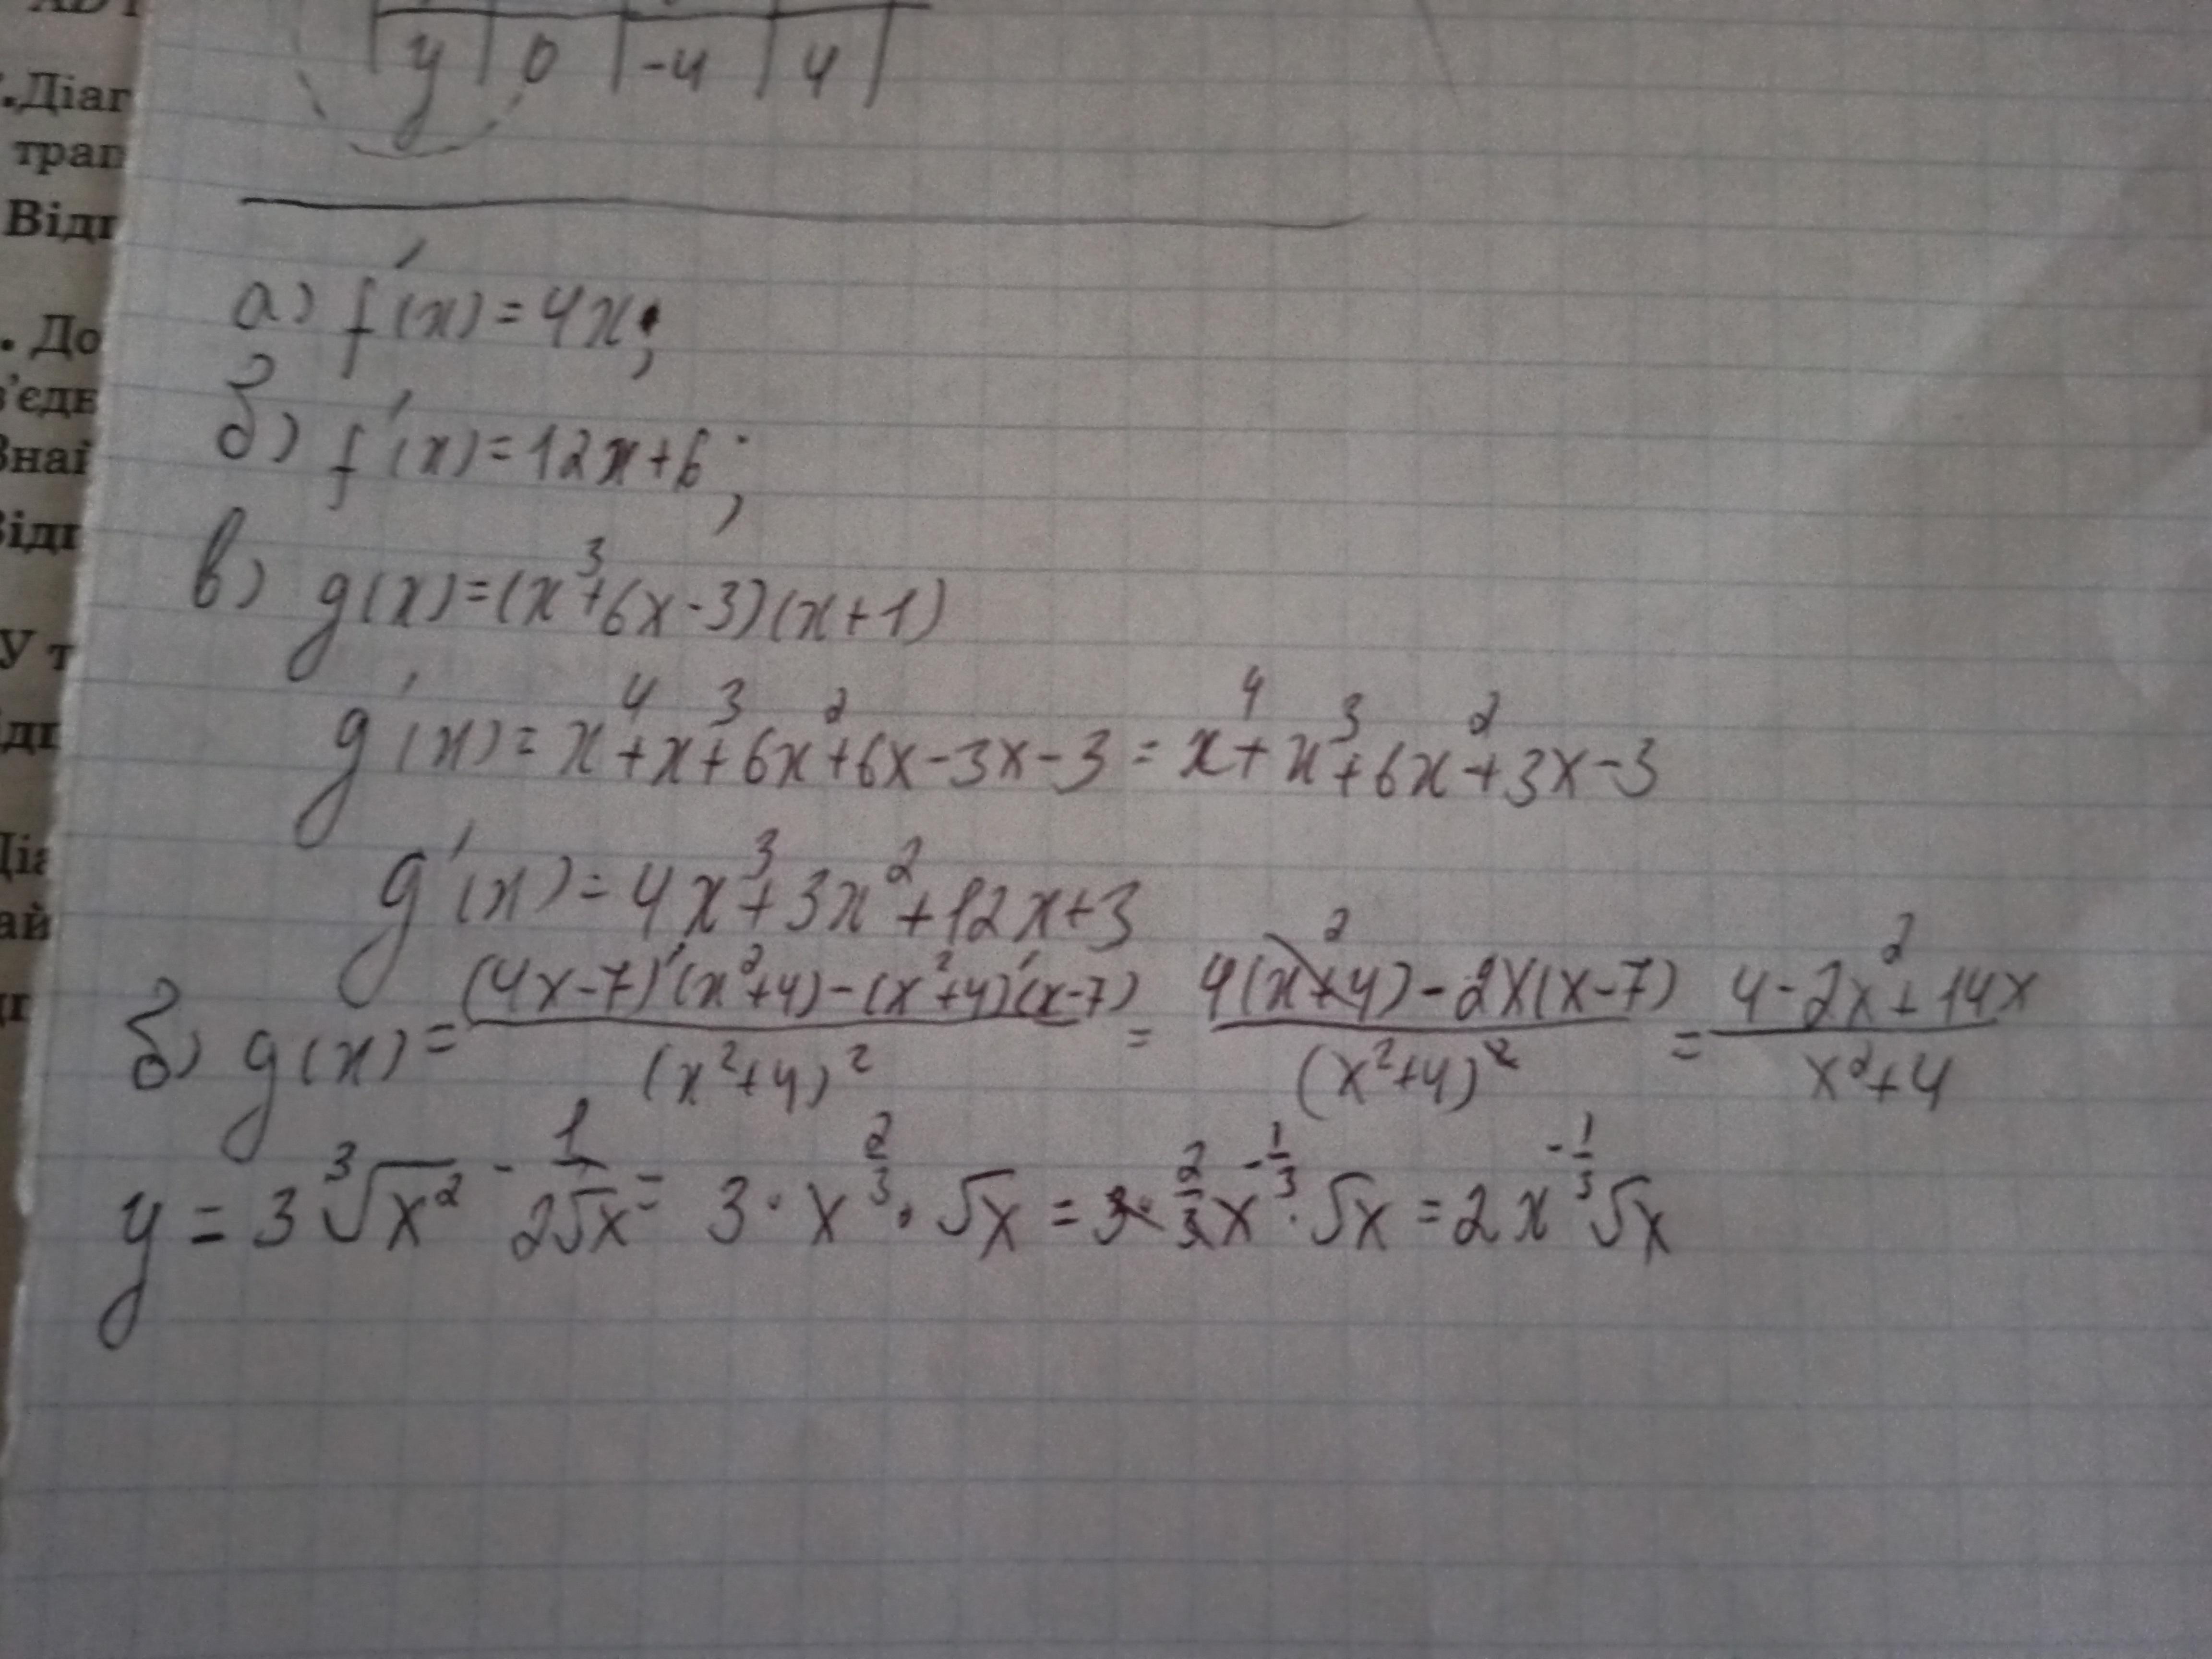 .Діаг
трап
Відп
. До
з'єдн
Знай
Відп
У т
Діа
y | 0 | -4 | 4
а) f'(x)=4x;
б) f'(x)=12x+6;
в) g(x)=(x³+6x-3)(x+1)
g'(x)=x⁴+x³+6x²+6x-3x-3=x⁴+x³+6x²+3x-3
g'(x)=4x³+3x²+12x+3
б) g(x)=((4x-7)'(x²+4)-(x²+4)'(x-7))/(x²+4)²=(4(x²+4)-2x(x-7))/(x²+4)²=(4-2x²+14x)/(x²+4)
y=3∛x²-1/(2√x)=3·x^(2/3)·√x=3·(2/3)x^(-1/3)·√x=2x^(-1/3)√x